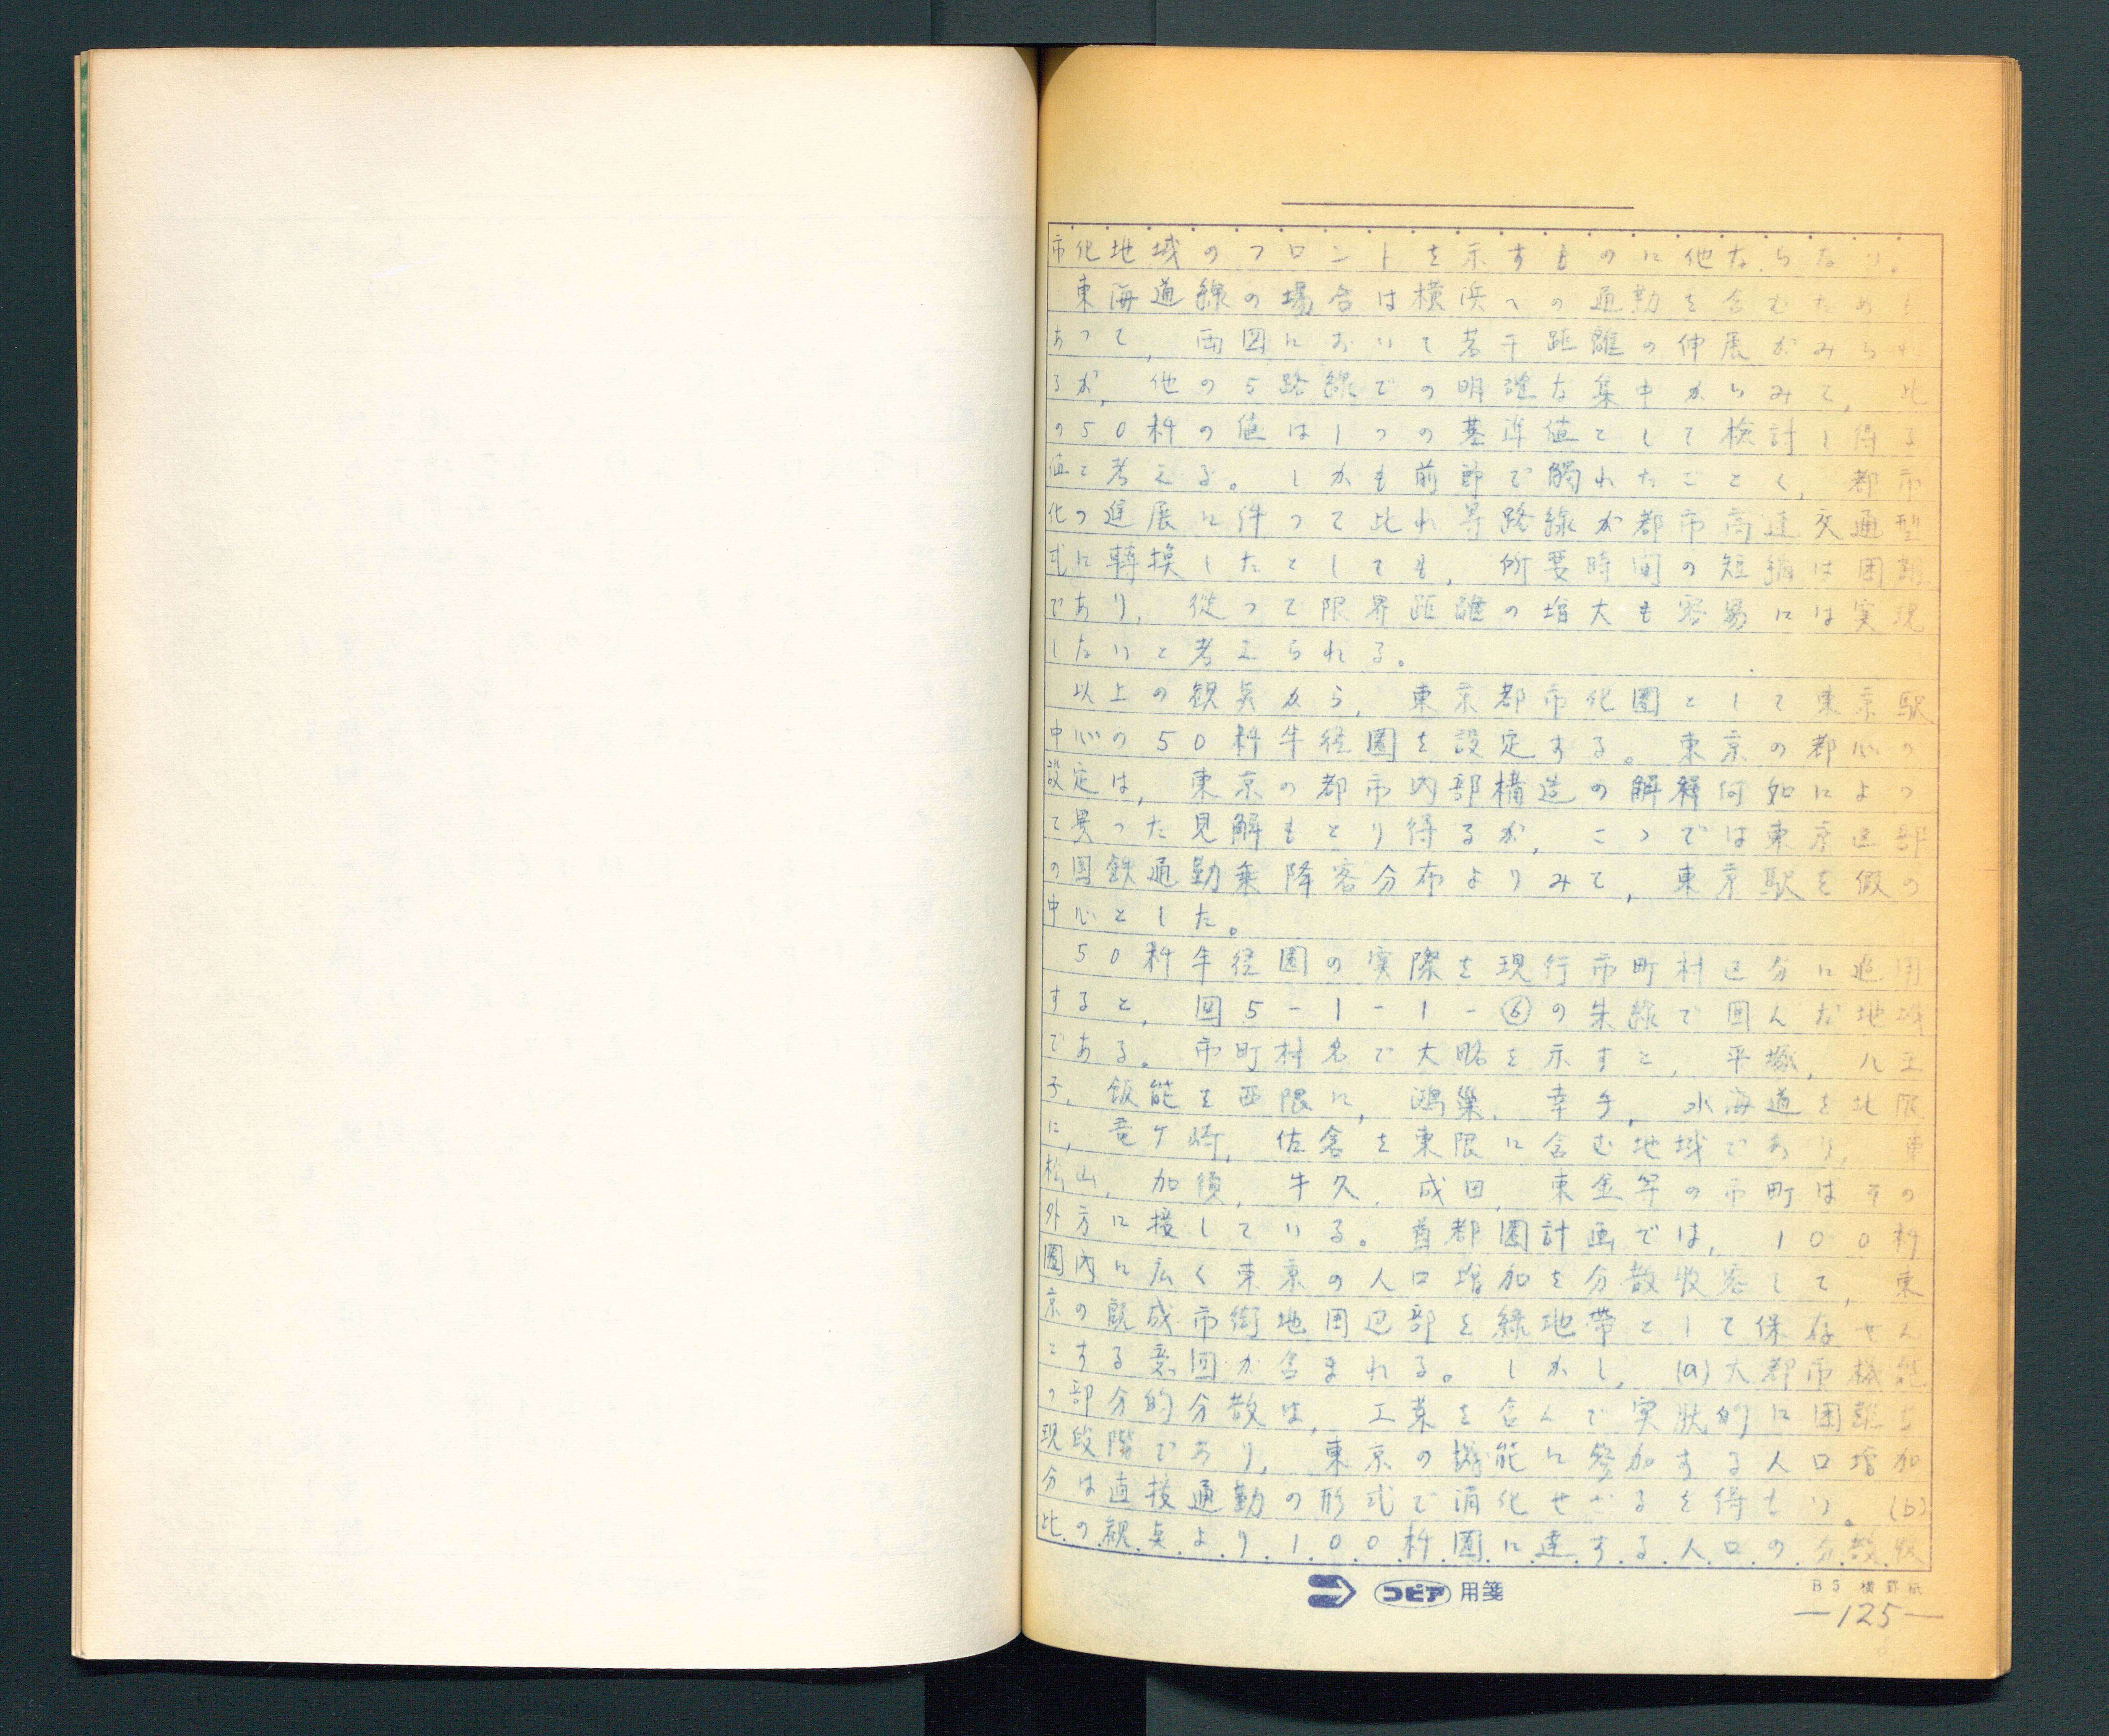 市化地域のフロントを示すものに他ならない。
東海道線の場合は横浜への通勤を含むためも
あって，両図において若干距離の伸展がみられ
るが，他の5路線での明確な集中からみて，此
の50粁の値は1つの基準値として検討し得る
値と考える。しかも前節で觸れたごとく，都市
化の進展に伴って此れ等路線が都市高速交通型
式に轉換したとしても，所要時間の短縮は困難
であり，従って限界距離の増大も容易には実現
しないと考えられる。
以上の観点から，東京都市化圏として東京駅
中心の50粁半径圏を設定する。東京の都心の
設定は，東京の都市内部構造の解釋何如によっ
て異った見解もとり得るが，こゝでは東京区部
の国鉄通勤乗降客分布よりみて，東京駅を假の
中心とした。
50粁半径圏の実際を現行市町村区分に適用
すると，図5-1-1-⑥の朱線で囲んだ地域
である。市町村名で大略を示すと，平塚，八王
子，飯能を西限に，鴻巣，幸手，水海道を北限
に，竜ケ崎，佐倉を東限に含む地域であり，東
松山，加須，牛久，成田，東金等の市町はその
外方に接している。首都圏計画では，100粁
圏内に広く東京の人口増加を分散収容して，東
京の既成市街地周辺部を緑地帯として保存せん
とする意図が含まれる。しかし，(a)大都市機能
の部分的分散は，工業を含んで実狀的に困難な
現段階であり，東京の機能に参加する人口増加
分は直接通勤の形式で消化せざるを得ない。(b)
此の観点より100粁圏に達する人口の分散収
コピア 用箋
B5 横罫紙
—125—